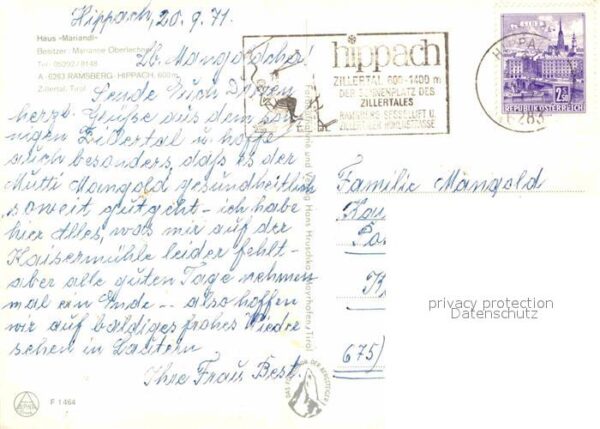 Hippach, 20.9.71.
Haus »Mariandl«
Besitzer: Marianne Oberlechner
Tel. 05292/8148
A-6283 RAMSBERG-HIPPACH, 600m
Zillertal, Tirol
Lb. Mangoldcha!
Sende Euch
herzl. Grüße aus dem son-
nigen Zillertal u. hoffe
auch besonders, daß es der
Mutti Mangold gesundheitlich
soweit gutgeht – ich habe
hier Alles, was mir auf der
Kaisermühle leider fehlt –
aber alle guten Tage nehmen
mal ein Ende – also hoffen
wir auf baldiges frohes Wieder
sehen in Lautern
Ihre Fraus Best.
F 1464
hippach
ZILLERTAL 600-1400 m
DER SONNENPLATZ DES
ZILLERTALES
RAMSBERG SESSELLIFT U.
ZILLERTALER HÖHENSTRASSE
HIPPA
6283
2.50
REPUBLIK ÖSTERREICH
Hans Hruschka, Mayrhofen, Tirol
Familie Mangold
675)
privacy protection
Datenschutz